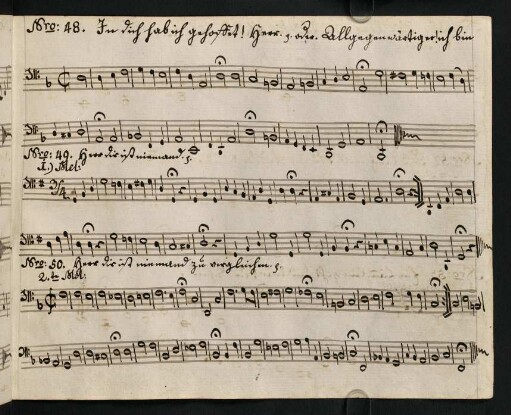 Nro: 48. In dich hab ich gehoffet! Herr. z. oder. Allgegenwärtiger! ich bin
Nro: 49. Herr dir ist niemand. z.
1.) Mel:
Nro: 50. Herr dir ist niemand zu vergleichen. z.
2.te Mel: